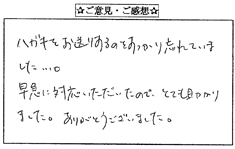 ☆ご意見・ご感想☆
ハガキをお送りするのをすっかり忘れていま
した…。
早急に対応いただいたので、とても助かり
ました。ありがとうございました。